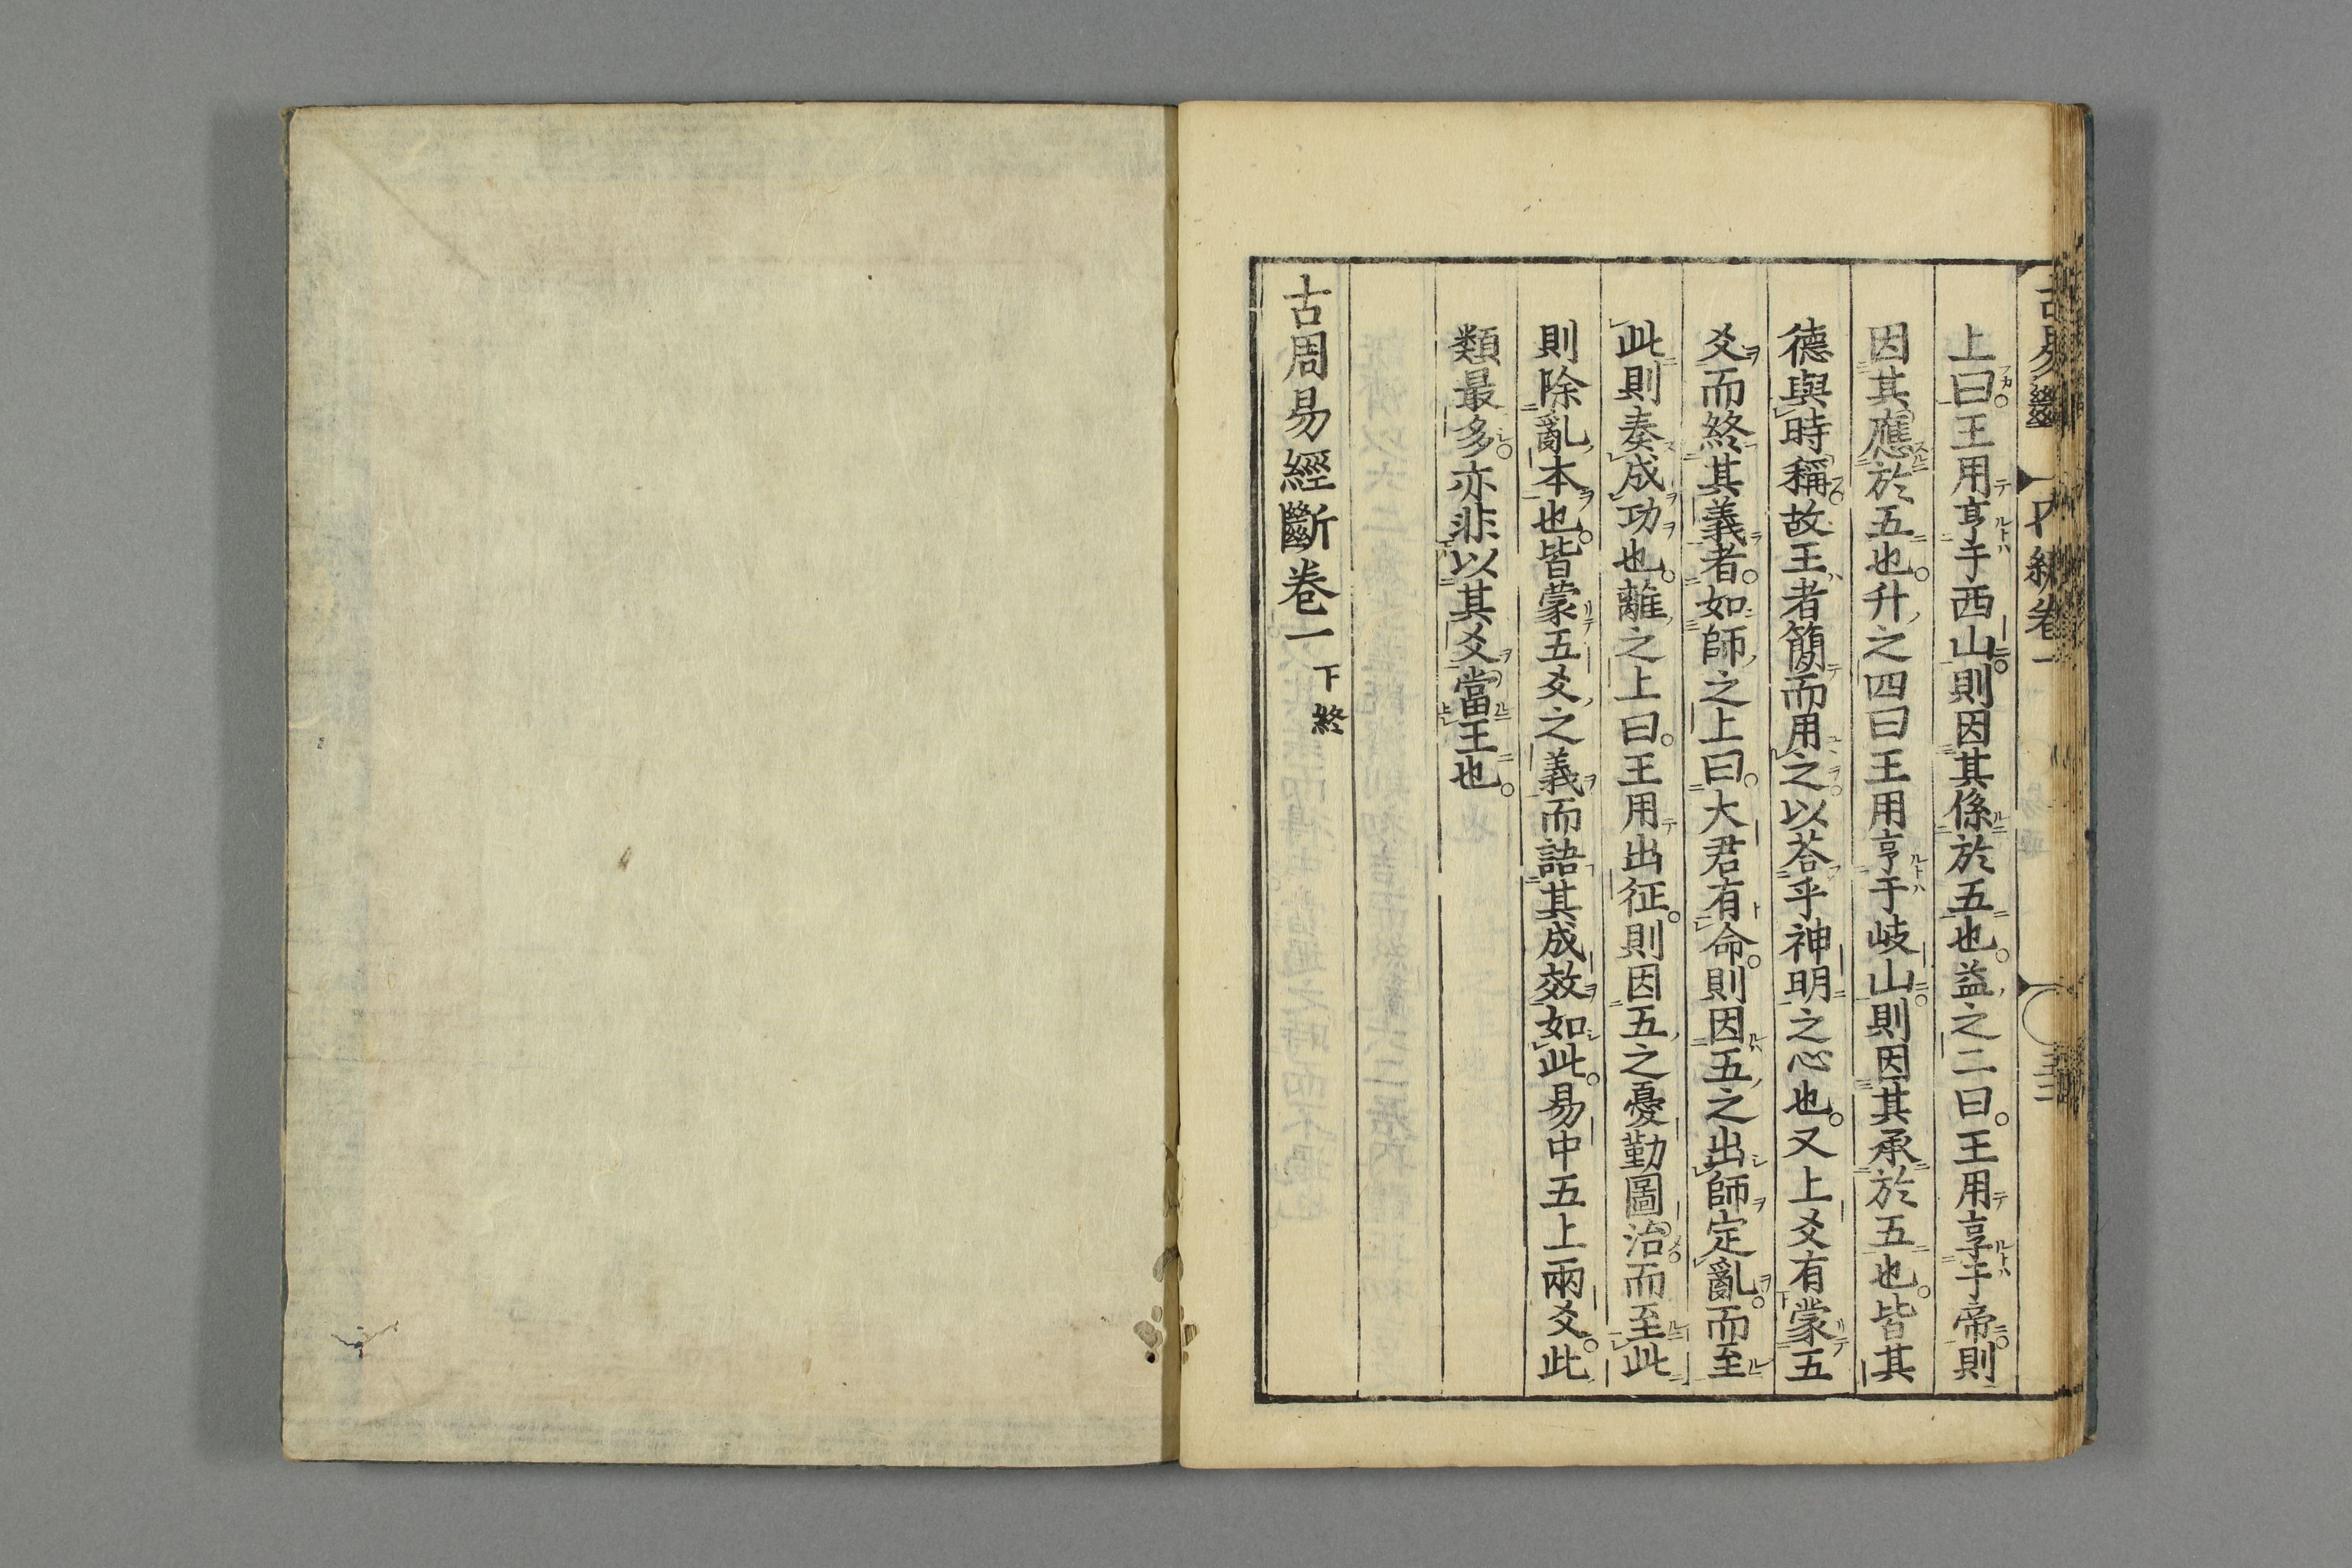 上曰王用亨于西山則因其係於五也益之二曰王用享于帝則
因其應於五也升之四曰王用亨于岐山則因其承於五也皆其
德與時稱故王者簡而用之以荅乎神明之心也又上爻有蒙五
爻而終其義者如師之上曰大君有命則因五之出師定亂而至
此則奏成功也離之上曰王用出征則因五之憂勤圖治而至此
則除亂本也皆蒙五爻之義而語其成效如此易中五上兩爻此
類最多亦非以其爻當王也
古周易經斷卷一 下終